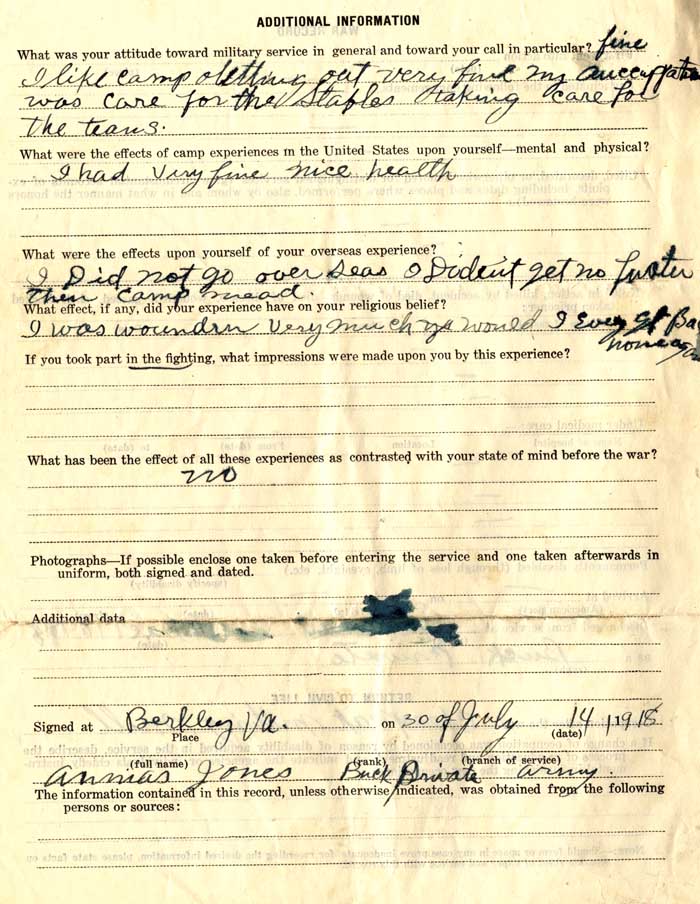 ADDITIONAL INFORMATION
What was your attitude toward military service in general and toward your call in particular? fine
I like camp getting out very fine my
was care for the Staples taking care for
the teams.
What were the effects of camp experiences in the United States upon yourself—mental and physical?
I had very fine nice health
What were the effects upon yourself of your overseas experience?
I Did not go over seas I Dident get no furter
then camp mead.
What effect, if any, did your experience have on your religious belief?
I was woundrn very much would I Ever get Ba
home
If you took part in the fighting, what impressions were made upon you by this experience?
What has been the effect of all these experiences as contrasted with your state of mind before the war?
no
Photographs—If possible enclose one taken before entering the service and one taken afterwards in
uniform, both signed and dated.
Additional data
Signed at Berkley Va. on 30 of July 14, 1918
Place (date)
(full name) (rank) (branch of service)
Annias Jones Buck Private army.
The information contained in this record, unless otherwise indicated, was obtained from the following
persons or sources: